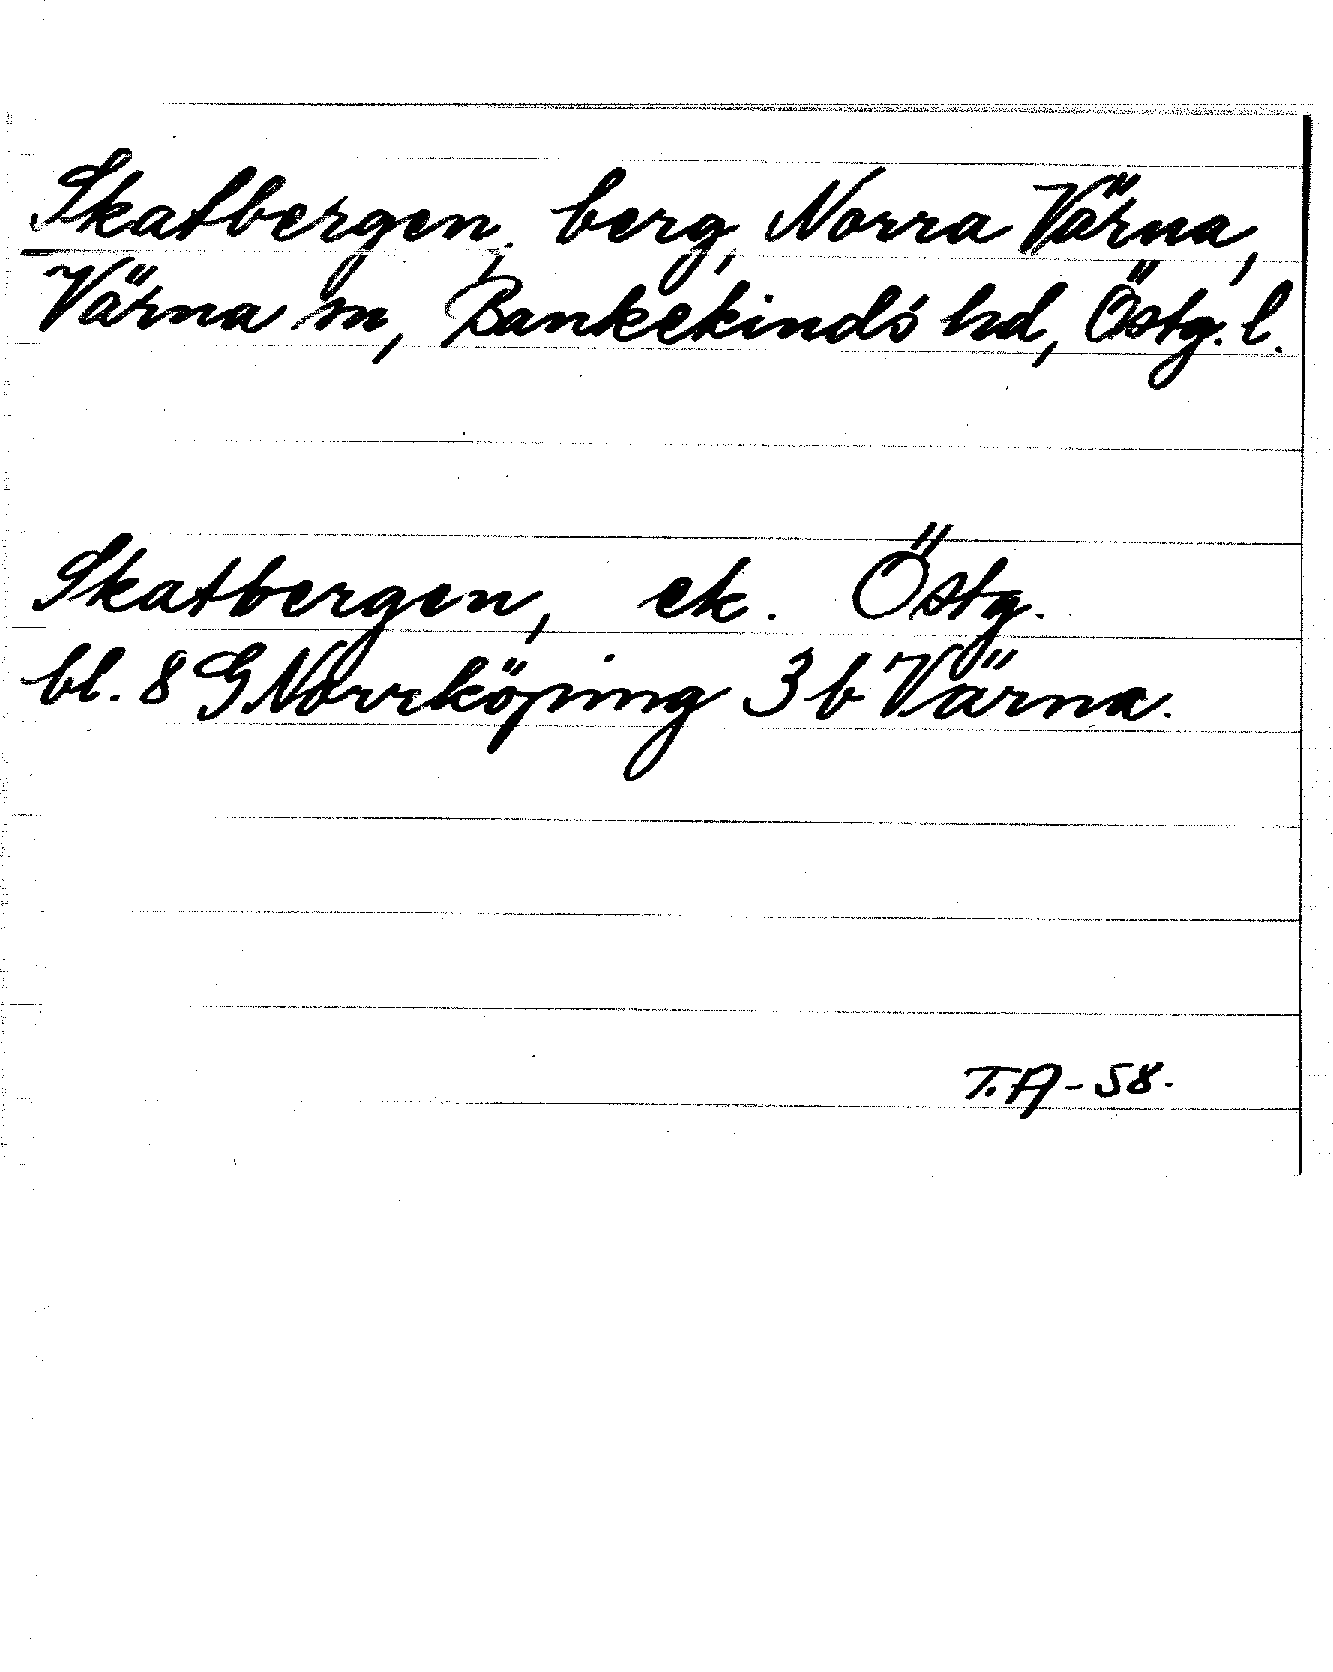 Skatbergen, berg, Norra Värna,
Värna sn, Bankekinds hd, Östg. l.
Skatbergen, ek. Östg.
bl. 8 G Norrköping 3 b Värna.
T.A-58.